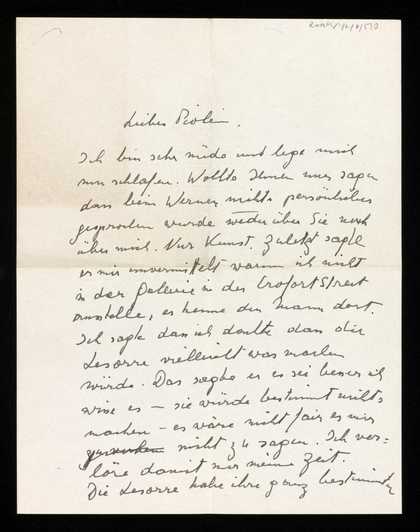 Lieber Violin.
Ich bin sehr müde und lege mich
nun schlafen. Wollte Ihnen nur sagen
dass beim Werner nichts persönliches
gesprochen wurde weder über Sie noch
über mich. Nur Kunst. Zuletzt sagte
er mir unvermittelt warum ich nicht
in der Galerie in der Street
ausstelle, er kenne den Mann dort.
Ich sagte dass ich dachte dass die
Lesorre vielleicht was machen
würde. Das sagte er es sei besser ich
wisse es – sie würde bestimmt nichts
machen – es wäre nicht fair es mir
nicht zu sagen. Ich ver-
löre damit nur meine Zeit.
Die Lesorre habe ihre ganz bestimmte